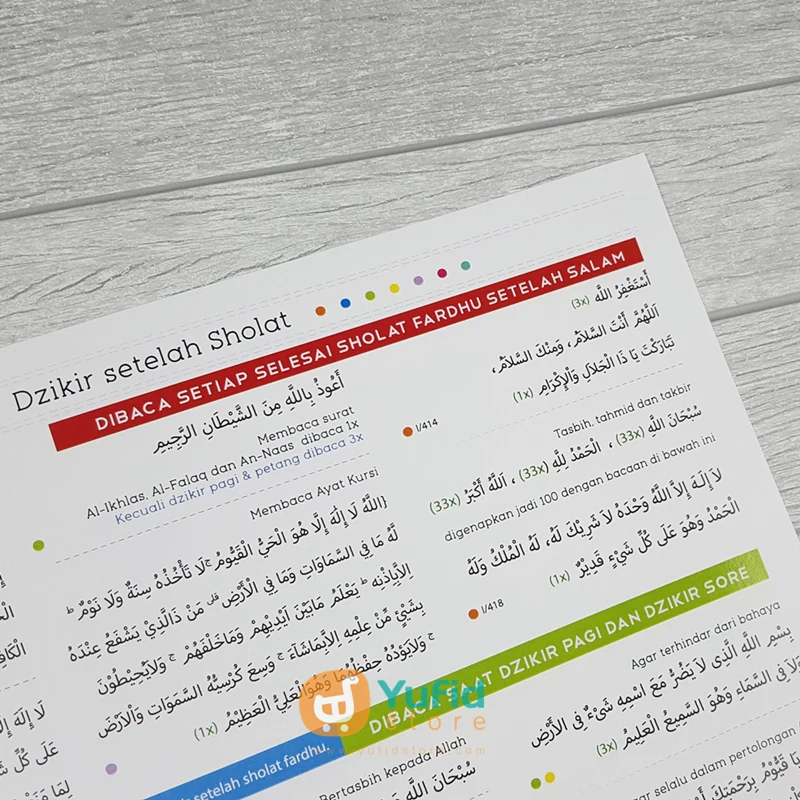 Dzikir setelah Sholat
DIBACA SETIAP SELESAI SHOLAT FARDHU SETELAH SALAM
أَسْتَغْفِرُ اللَّه (3x)
اَللَّهُمَّ أَنْتَ السَّلاَمُ، وَمِنْكَ السَّلاَمُ،
تَبَارَكْتَ يَا ذَا الْجَلاَلِ وَالْإِكْرَامِ (1x)
1/414
Tasbih, tahmid dan takbir
سُبْحَانَ اللَّهِ (33x) ، الْحَمْدُ لِلَّهِ (33x) ، اَللَّهُ أَكْبَرُ (33x)
digenapkan jadi 100 dengan bacaan di bawah ini
لاَ إِلَهَ إِلاَّ اللَّهُ وَحْدَهُ لاَ شَرِيْكَ لَهُ، لَهُ الْمُلْكُ وَلَهُ
الْحَمْدُ وَهُوَ عَلَى كُلِّ شَيْءٍ قَدِيْرٌ (1x)
1/418
أَعُوذُ بِاللَّهِ مِنَ الشَّيْطَانِ الرَّجِيمِ
Membaca surat
Al-Ikhlas, Al-Falaq dan An-Naas dibaca 1x
Kecuali dzikir pagi & petang dibaca 3x
Membaca Ayat Kursi
{اللَّهُ لَا إِلَٰهَ إِلَّا هُوَ الْحَيُّ الْقَيُّومُ ۚ لَا تَأْخُذُهُ سِنَةٌ وَلَا نَوْمٌ ۚ
لَّهُ مَا فِي السَّمَاوَاتِ وَمَا فِي الْأَرْضِ ۗ مَن ذَالَّذِيْ يَشْفَعُ عِنْدَهُ
اِلَّابِاِذْنِهٖ ۗ يَعْلَمُ مَابَيْنَ اَيْدِيْهِمْ وَمَاخَلْفَهُمْ ۚ وَلَايُحِيْطُوْنَ
بِشَيْئٍ مِّنْ عِلْمِهٖ اِلَّابِمَاشَآءَ ۚ وَسِعَ كُرْسِيُّهُ السَّمَوَاتِ وَالْاَرْضَ
ۚ وَلَايَؤُدُهُ حِفْظُهُمَا وَهُوَالْعَلِيُّ الْعَظِيْمُ (1x)
DIBACA SAAT DZIKIR PAGI DAN DZIKIR SORE
Agar terhindar dari bahaya
بِسْمِ اللَّهِ الَّذِى لاَ يَضُرُّ مَعَ اسْمِهِ شَىْءٌ فِى الأَرْضِ
وَلاَ فِى السَّمَاءِ وَهُوَ السَّمِيعُ الْعَلِيمُ (3x)
selalu dalam pertolongan
يَا قَيُّوْمُ بِرَحْمَتِكَ
setelah sholat fardhu.
Bertasbih kepada Allah
سُبْحَانَ اللَّهِ
لاَ إِلَهَ إِلَّا
عَلَى كُلِّ شَيْ
YuFid
Store
www.yufidstore.com